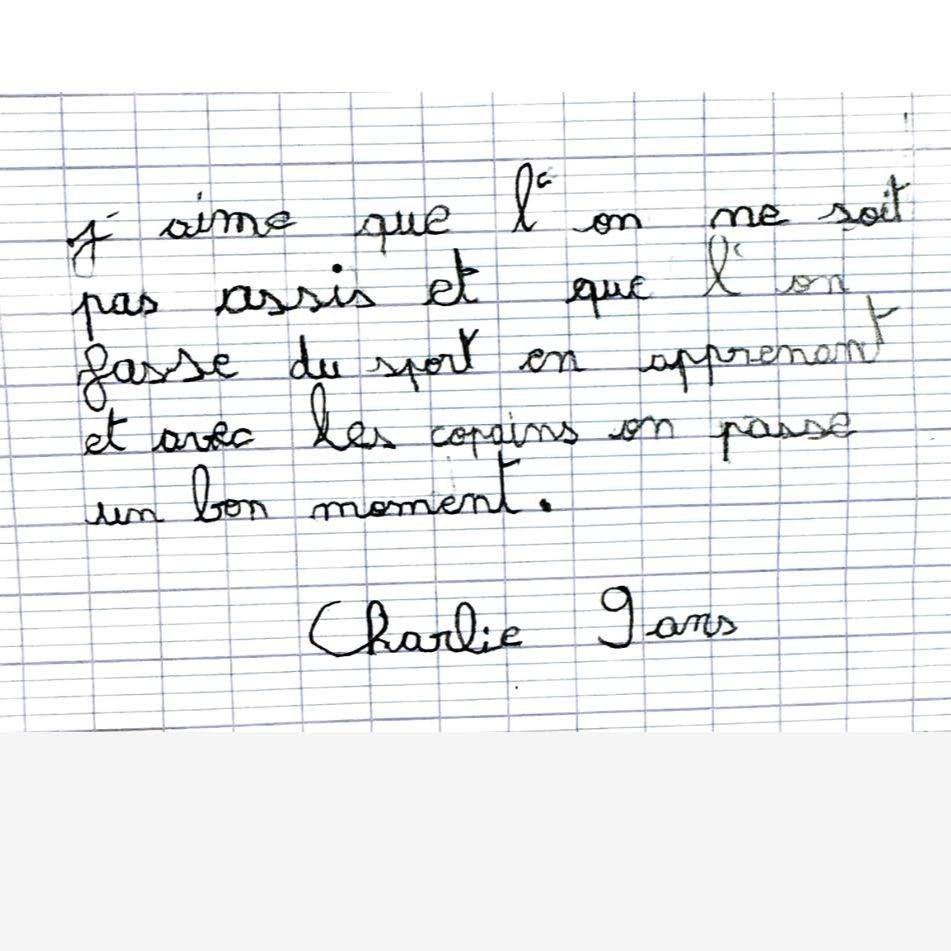 j' aime que l' on ne soit
pas assis et que l' on
fasse du sport en apprenant
et avec les copains on passe
un bon moment.
Charlie 9 ans